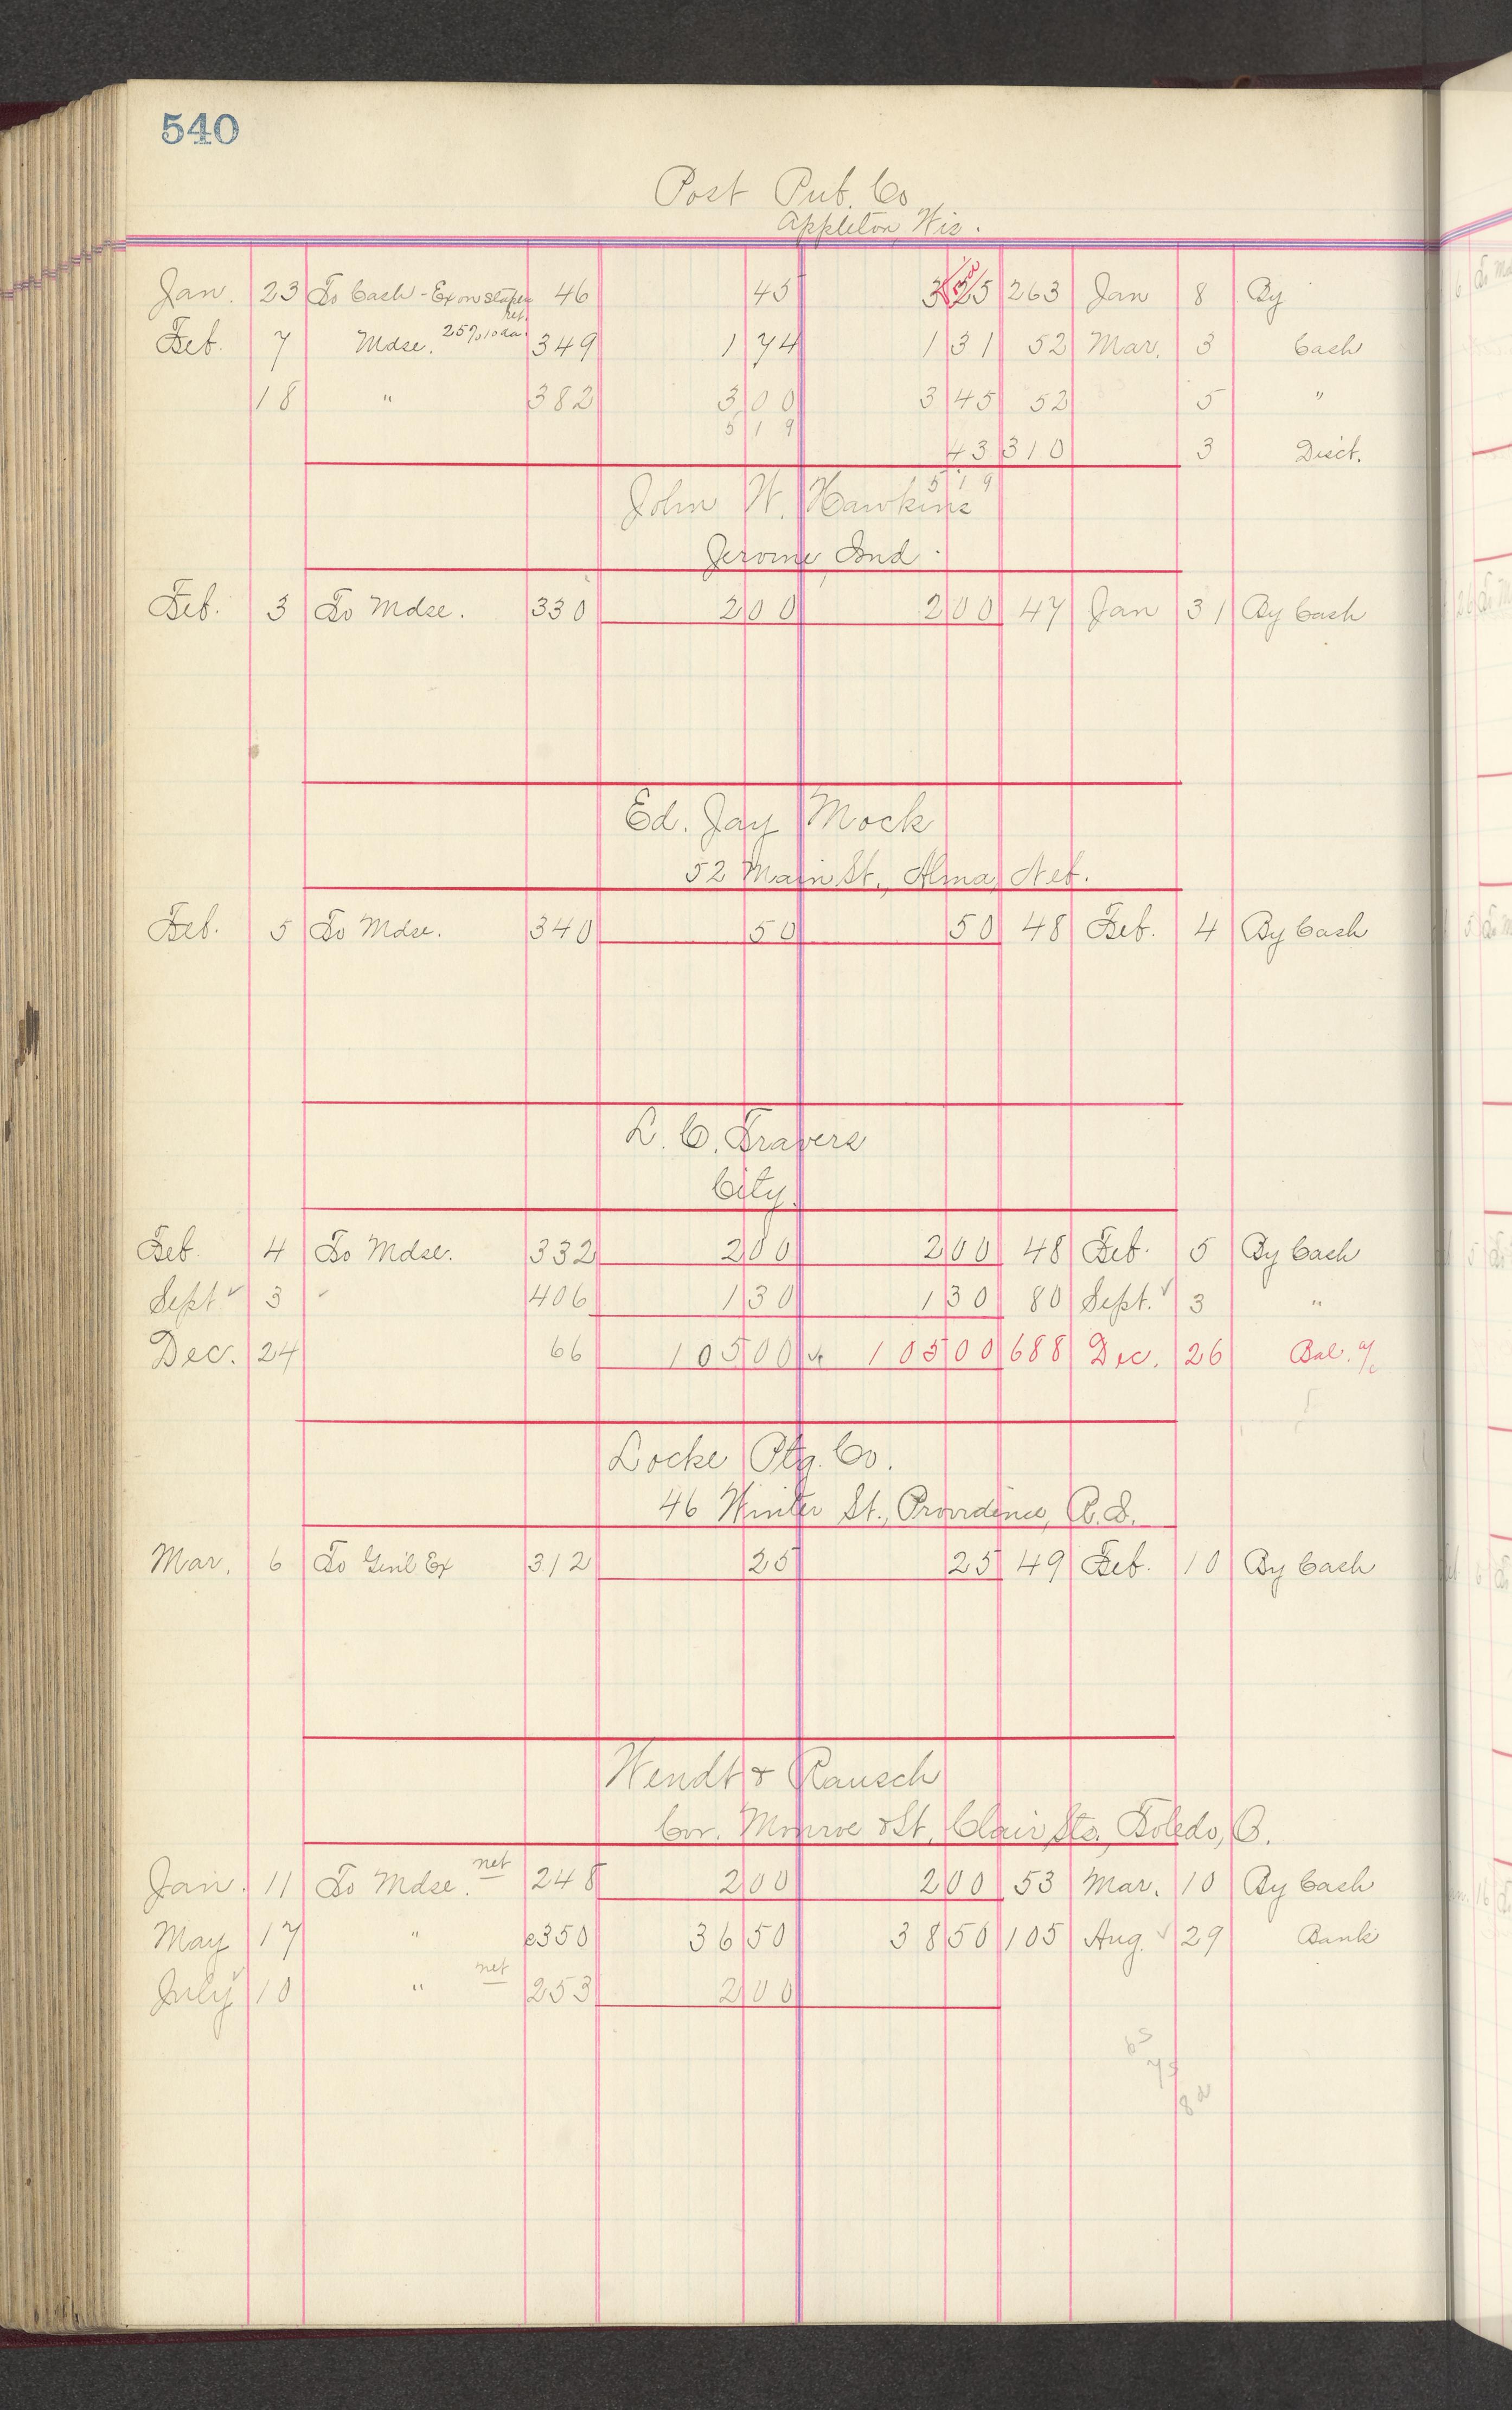 540
Post Pub. Co
Appleton, Wis.
Jan. 23 To Cash - Ex on 46 45 3 25 263 Jan 8 By
ret.
Feb. 7 Mdse. 25% 10 da. 349 1 74 1 31 52 Mar. 3 Cash
18 " 382 3 00 3 45 52 5 "
5 19
43 310 3 Disct.
5 19
John W. Hawkins
Jerome, Ind.
Feb. 3 To Mdse. 330 2 00 2 00 47 Jan 31 By Cash
Ed. Jay Mock
52 Main St., Alma, Neb.
Feb. 5 To Mdse. 340 50 50 48 Feb. 4 By Cash
L. C. Travers
City.
Feb. 4 To Mdse. 332 2 00 2 00 48 Feb. 5 By Cash
Sept. ✓ 3 " 406 1 30 1 30 80 Sept. ✓ 3 "
Dec. 24 66 105 00 105 00 688 Dec. 26 Bal. a/c
Locke Ptg. Co.
46 Winter St., Providence, R.I.
Mar. 6 To Gen'l Ex 312 25 25 49 Feb. 10 By Cash
Wendt & Rausch
Cor. Monroe & St. Clair Sts. Toledo, O.
Jan. 11 To Mdse. net 248 2 00 2 00 53 Mar. 10 By Cash
May 17 " e350 36 50 38 50 105 Aug. ✓ 29 Bank
July 10 " net 253 2 00